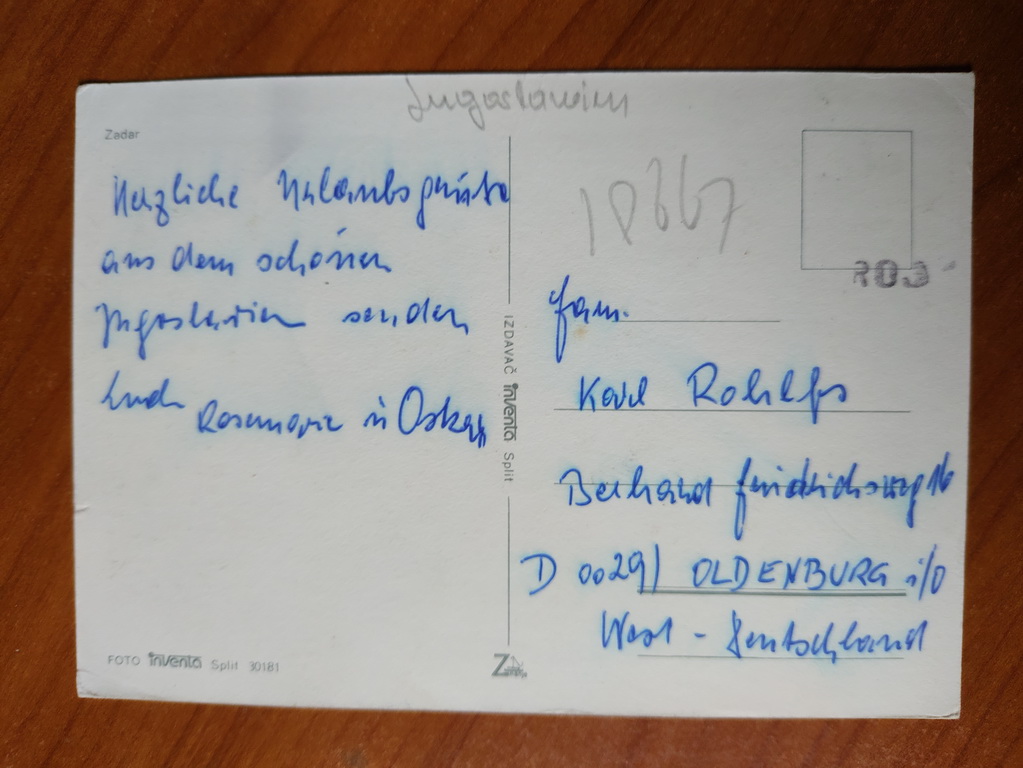 Jugoslawien
Zadar
Herzliche Urlaubsgrüße
aus dem schönen
Jugoslawien senden
Euch Rosemarie u Oskar
18667
RO
Fam.
Karl Rohlfs
Bernhard Friedrichsweg 16
D 0029) OLDENBURG i/O
West - Deutschland
IZDAVAČ inventa Split
FOTO inventa Split 30181
Z